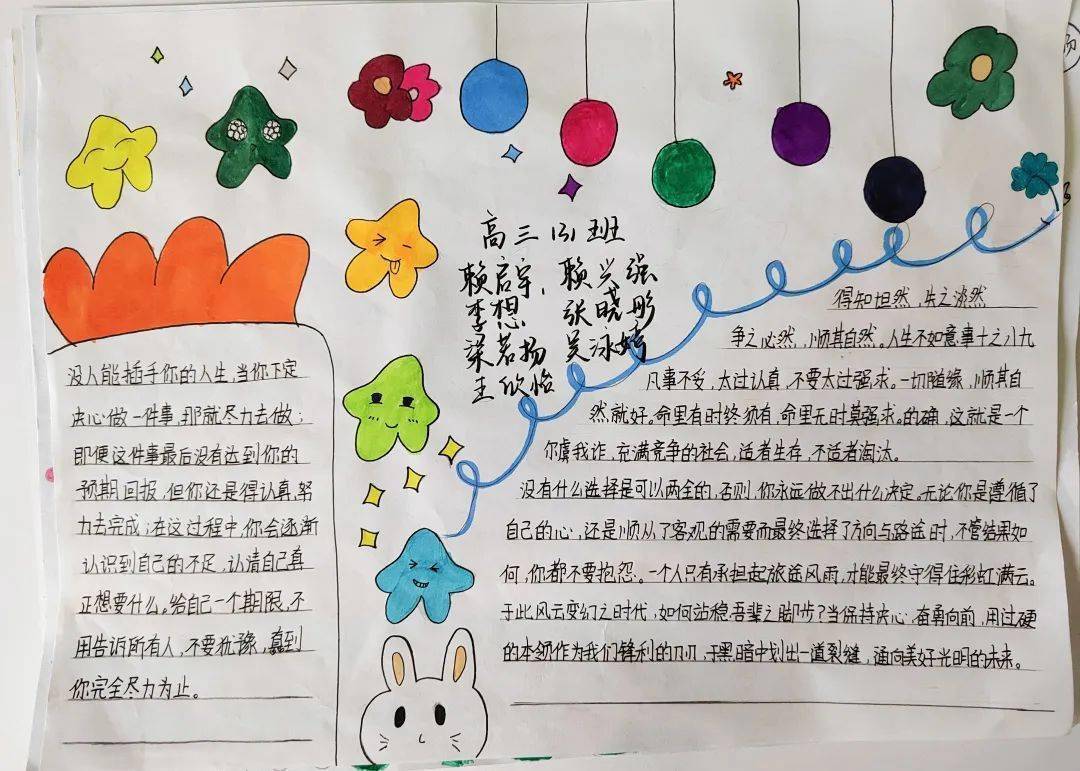 高三(3)班
赖启宇、赖兴强
李想 张晓彤
梁若扬 吴泳婷
王欣怡
没人能插手你的人生,当你下定
决心做一件事,那就尽力去做;
即便这件事最后没有达到你的
预期回报,但你还是得认真,努
力去完成;在这过程中,你会逐渐
认识到自己的不足,认清自己真
正想要什么。给自己一个期限,不
用告诉所有人,不要犹豫,直到
你完全尽力为止。
得知坦然,失之淡然
争之必然,顺其自然。人生不如意事十之八九
凡事不妥,太过认真,不要太过强求。一切随缘,顺其自
然就好。命里有时终须有,命里无时莫强求。的确,这就是一个
尔虞我诈,充满竞争的社会,适者生存,不适者淘汰。
没有什么选择是可以两全的,否则,你永远做不出什么决定。无论你是遵循了
自己的心,还是顺从了客观的需要而最终选择了方向与路途时,不管结果如
何,你都不要抱怨。一个人只有承担起旅途风雨,才能最终守得住彩虹满云。
于此风云变幻之时代,如何站稳吾辈之脚步?当保持决心,奋勇向前,用过硬
的本领作为我们锋利的爪爪,于黑暗中划出一道裂缝,通向美好光明的未来。